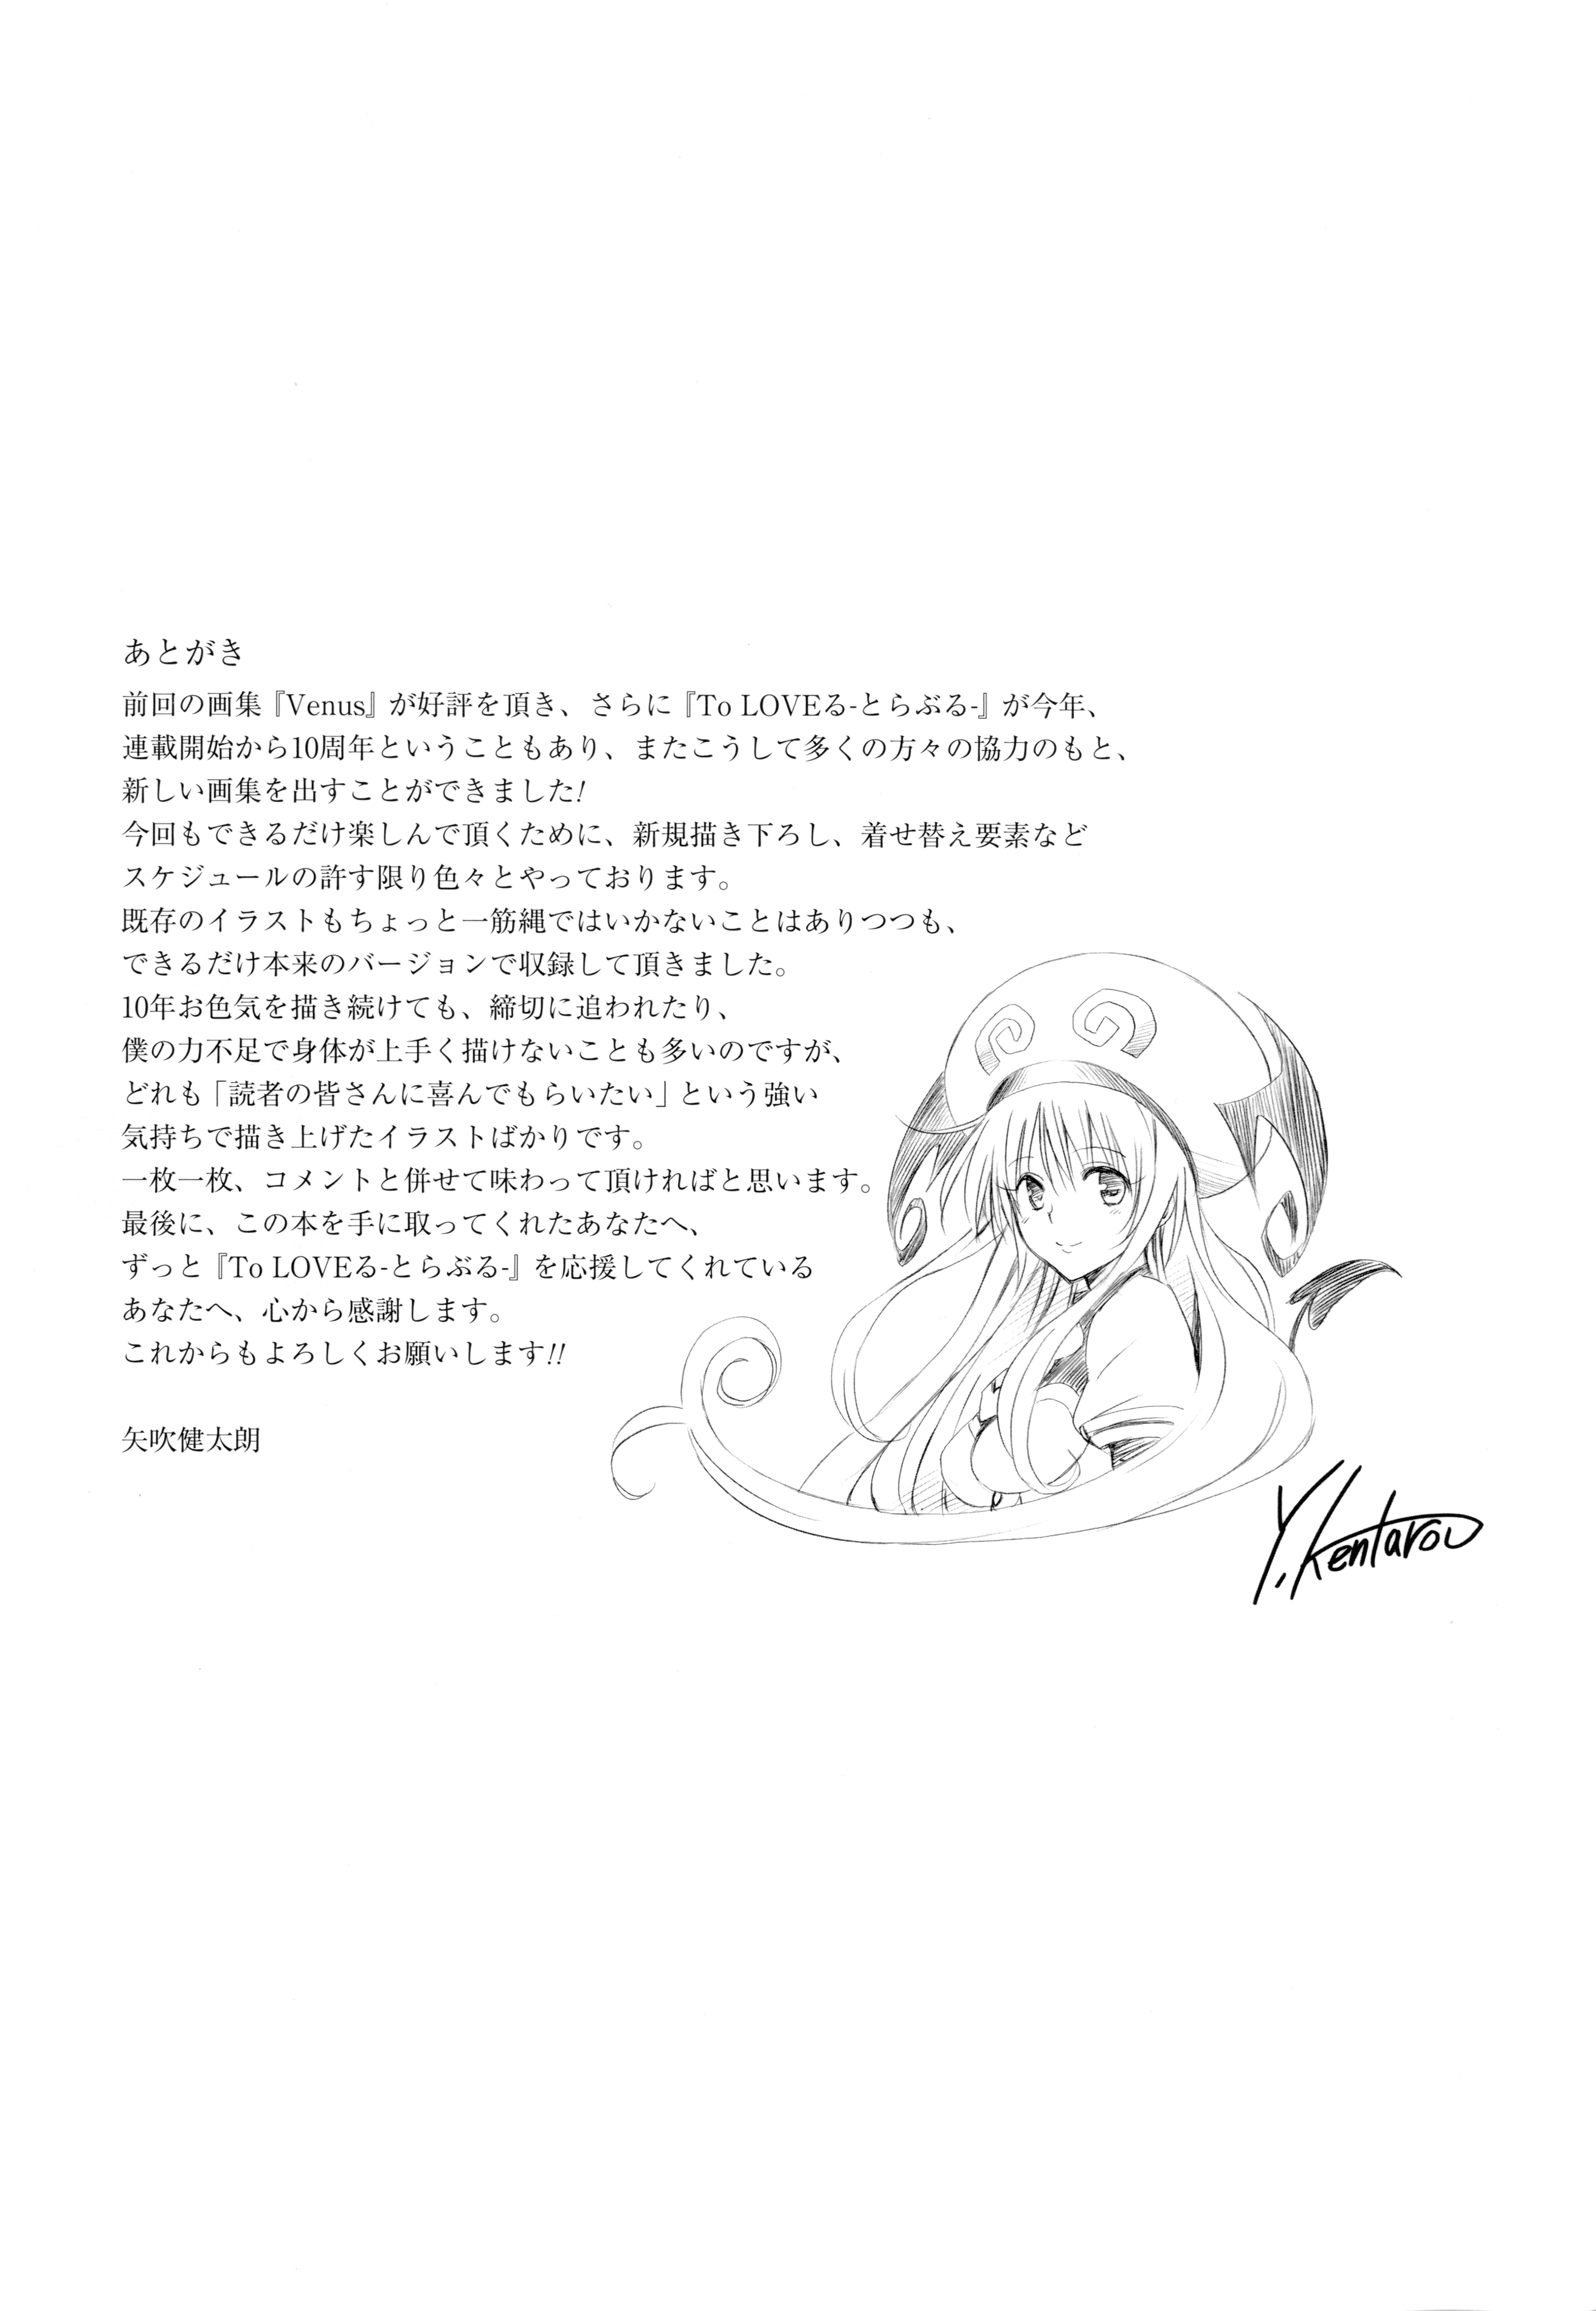 あとがき
前回の画集『Venus』が好評を頂き、さらに『To LOVEる-とらぶる-』が今年、
連載開始から10周年ということもあり、またこうして多くの方々の協力のもと、
新しい画集を出すことができました!
今回もできるだけ楽しんで頂くために、新規描き下ろし、着せ替え要素など
スケジュールの許す限り色々とやっております。
既存のイラストもちょっと一筋縄ではいかないことはありつつも、
できるだけ本来のバージョンで収録して頂きました。
10年お色気を描き続けても、締切に追われたり、
僕の力不足で身体が上手く描けないことも多いのですが、
どれも「読者の皆さんに喜んでもらいたい」という強い
気持ちで描き上げたイラストばかりです。
一枚一枚、コメントと併せて味わって頂ければと思います。
最後に、この本を手に取ってくれたあなたへ、
ずっと『To LOVEる-とらぶる-』を応援してくれている
あなたへ、心から感謝します。
これからもよろしくお願いします!!
矢吹健太朗
Y.Kentarou